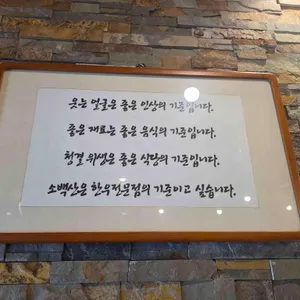 웃는 얼굴은 좋은 인상의 기준입니다.
좋은 재료는 좋은 음식의 기준입니다.
청결 위생은 좋은 식당의 기준입니다.
소백산은 한우전문점의 기준이고 싶습니다.